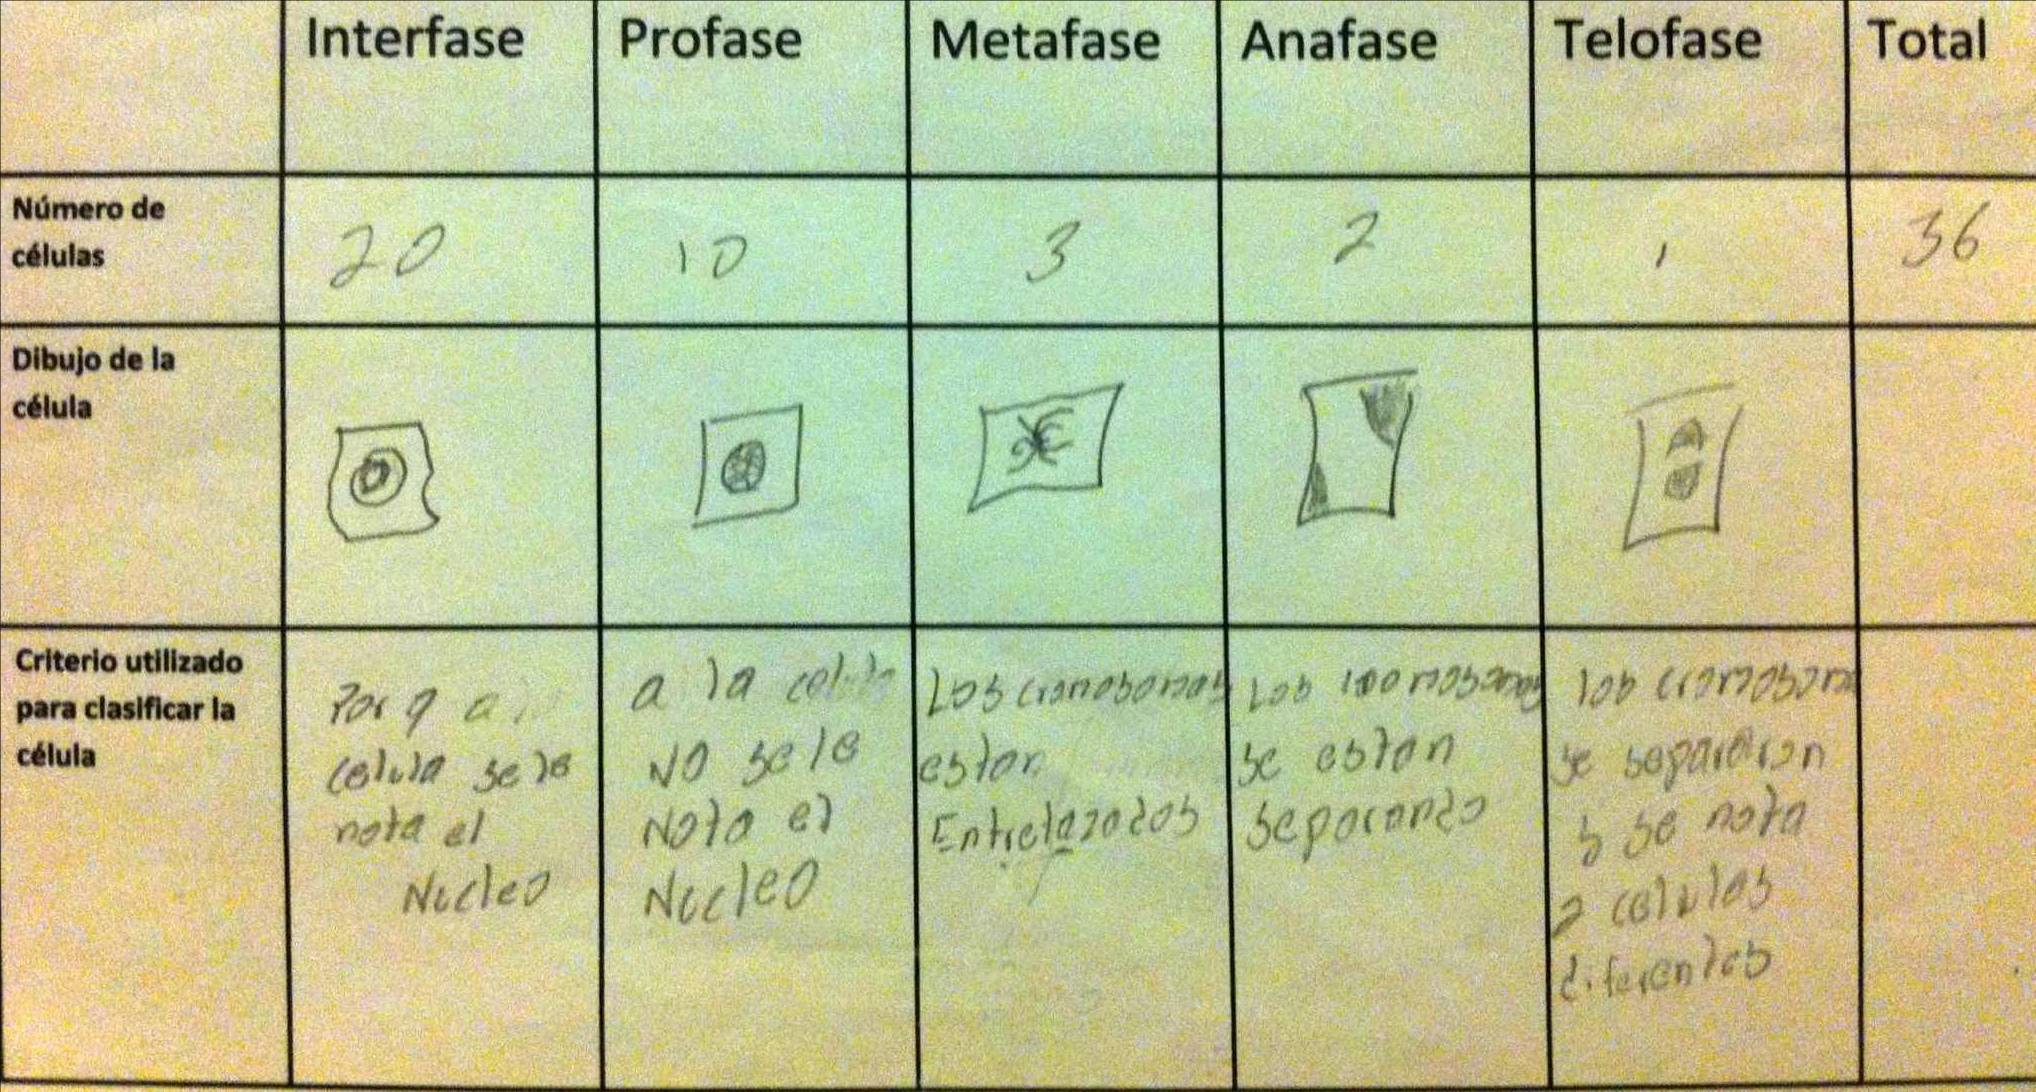 Interfase Profase Metafase Anafase Telofase Total
Número de
células
20 10 3 2 1 36
Dibujo de la
célula
Criterio utilizado
para clasificar la
célula
Por q a
celula se le
nota el
Nucleo
a la celula
NO se le
Nota el
Nucleo
Los cromosomas
estan
Entrelazados
Los cromosomas
se estan
separando
los cromosoma
se separaron
y se nota
2 celulas
diferentes